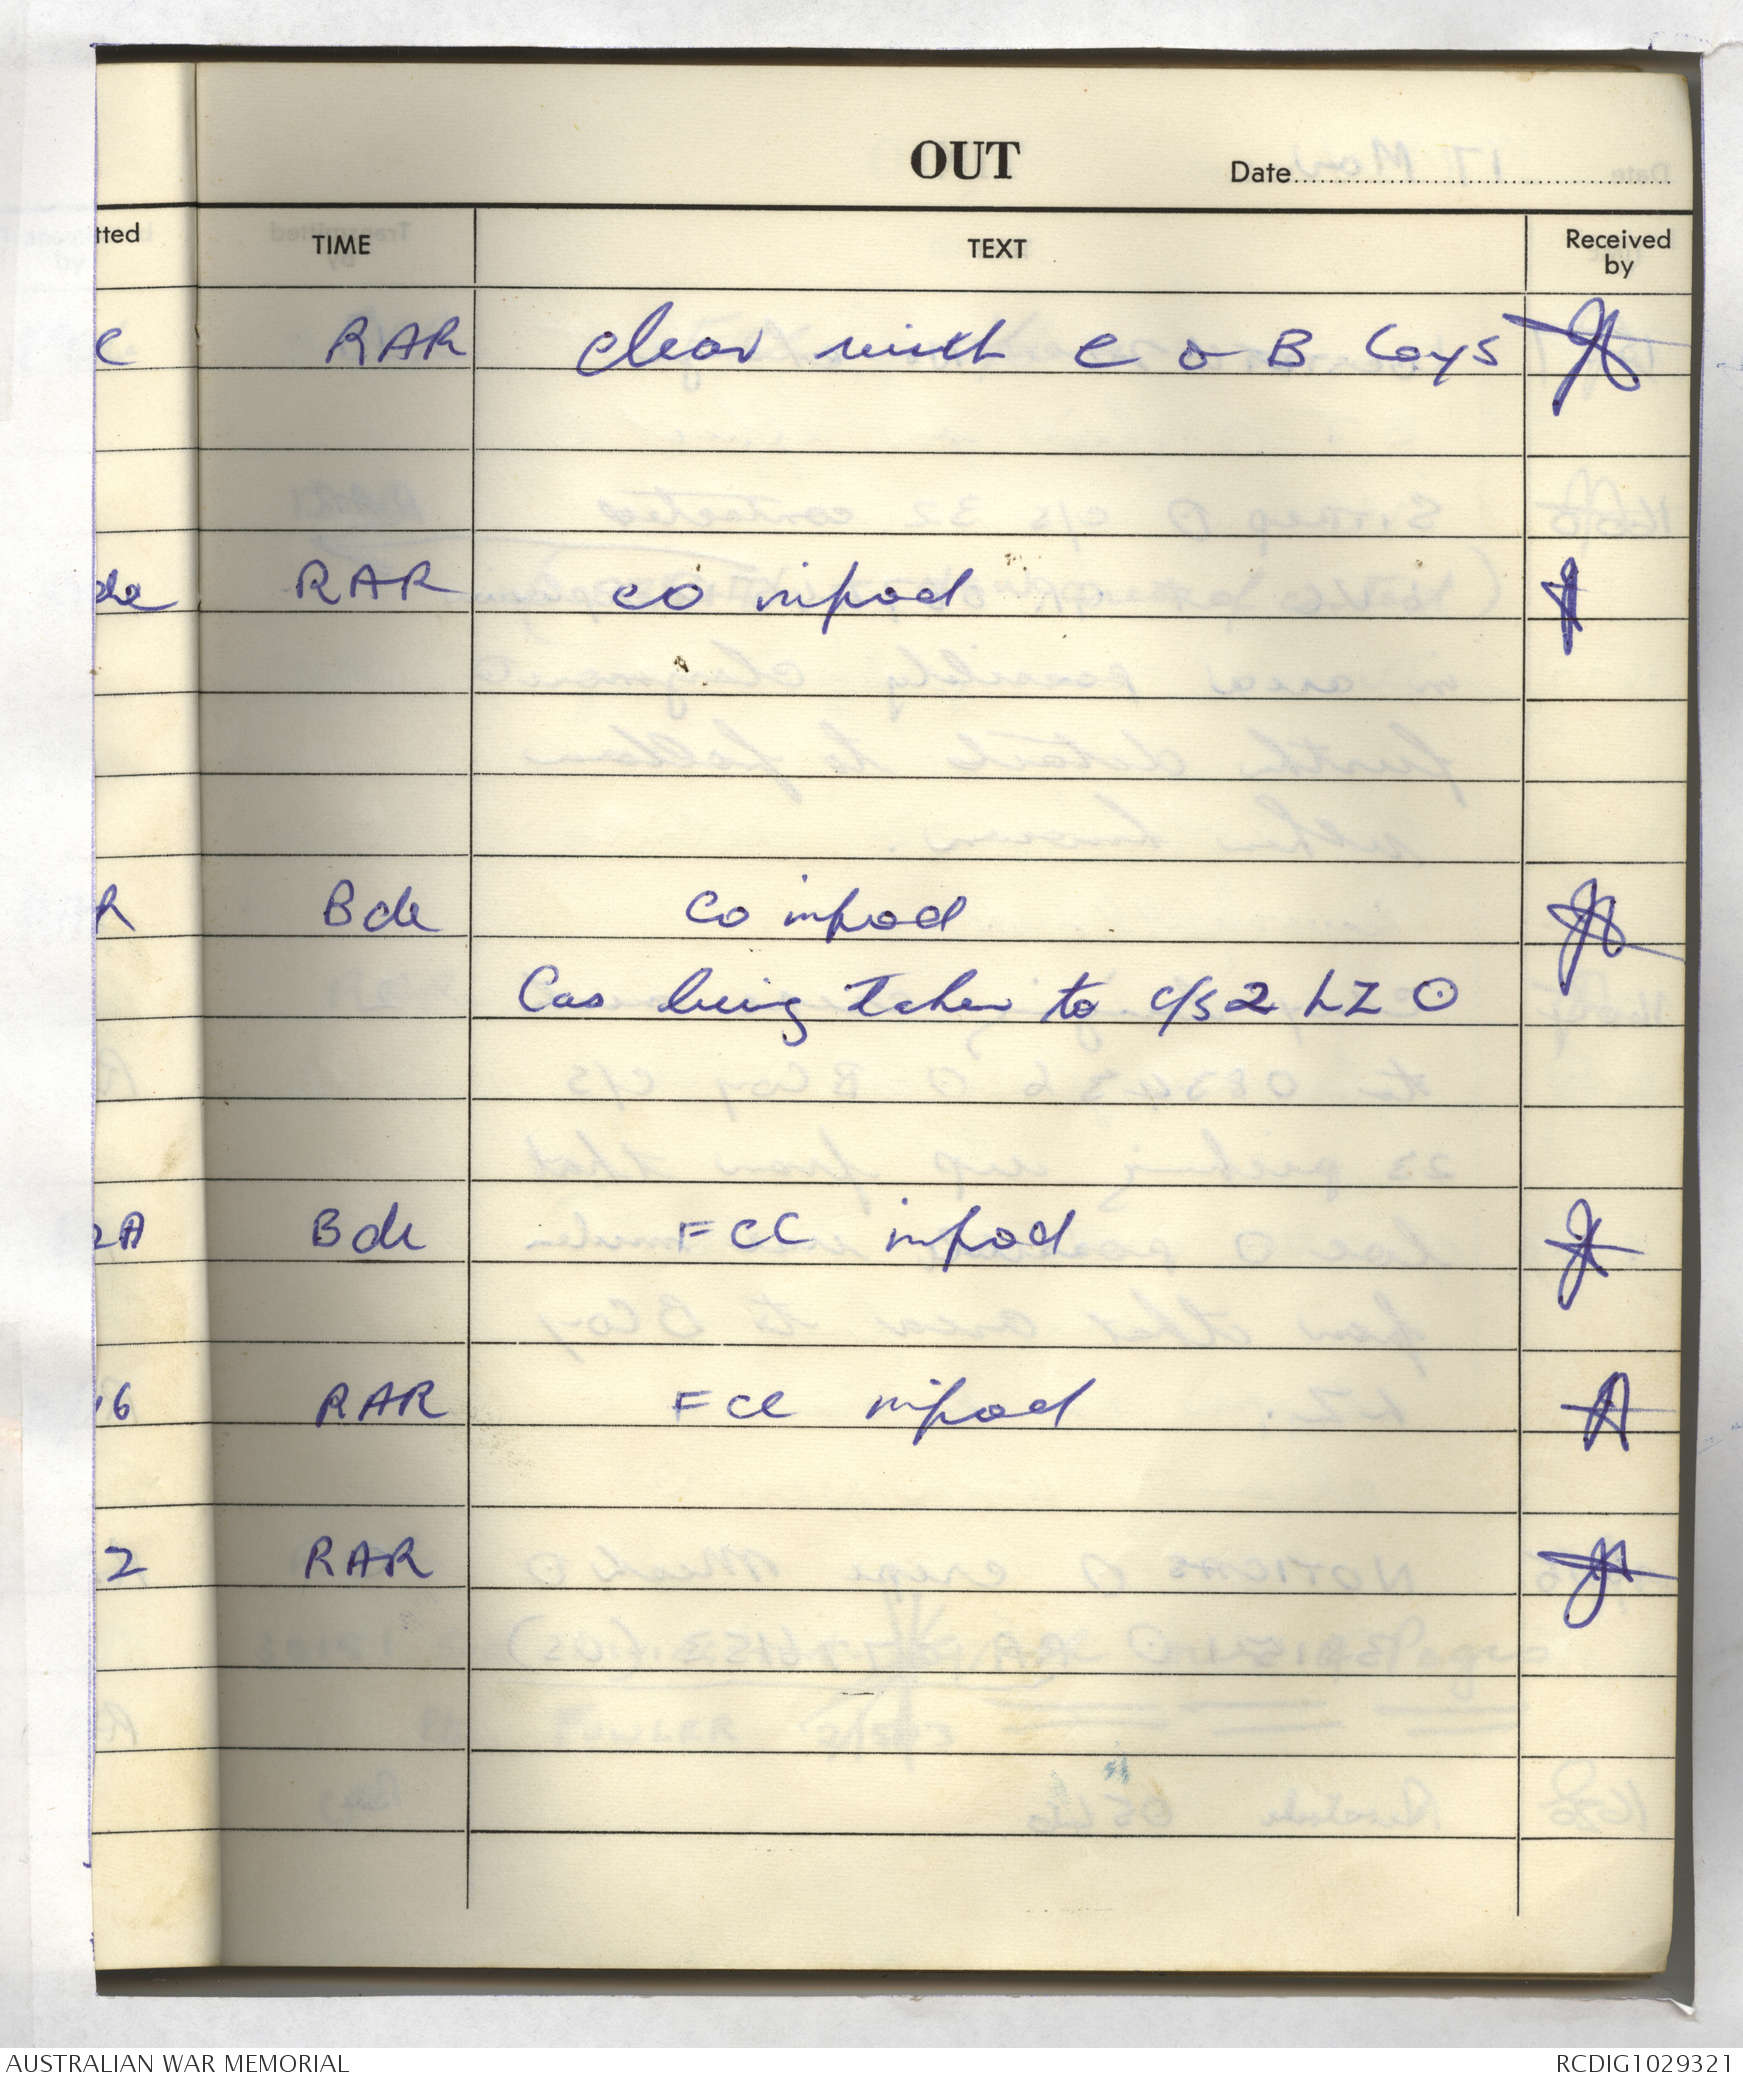 OUT
Date
tted TIME TEXT Received by
C RAR clear with C & B Coys
de RAR CO infod
R Bde CO infod
Cas being taken to c/s 2 LZ
2A Bde FCC infod
16 RAR FCC infod
2 RAR
AUSTRALIAN WAR MEMORIAL RCDIG1029321